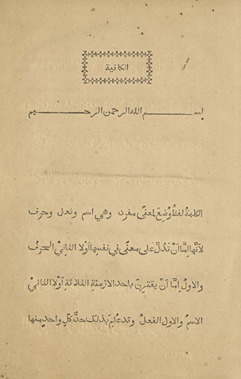 الكافية
بسم الله الرحمن الرحيم
الكلمة لفظ وُضِعَ لمعنًى مفرد وهي اسم وفعل وحرف
لأنّها إمّا أنْ تَدُلَّ على معنًى في نفسها أوْلا الثاني الحرفُ
والاول إمّا أنْ يقترنَ باحد الازمنة الثلاثة أوْلا الثاني
الاسمُ والاول الفعلُ وقد عُلِمَ بذلك حدُّ كلِّ واحدٍ منها